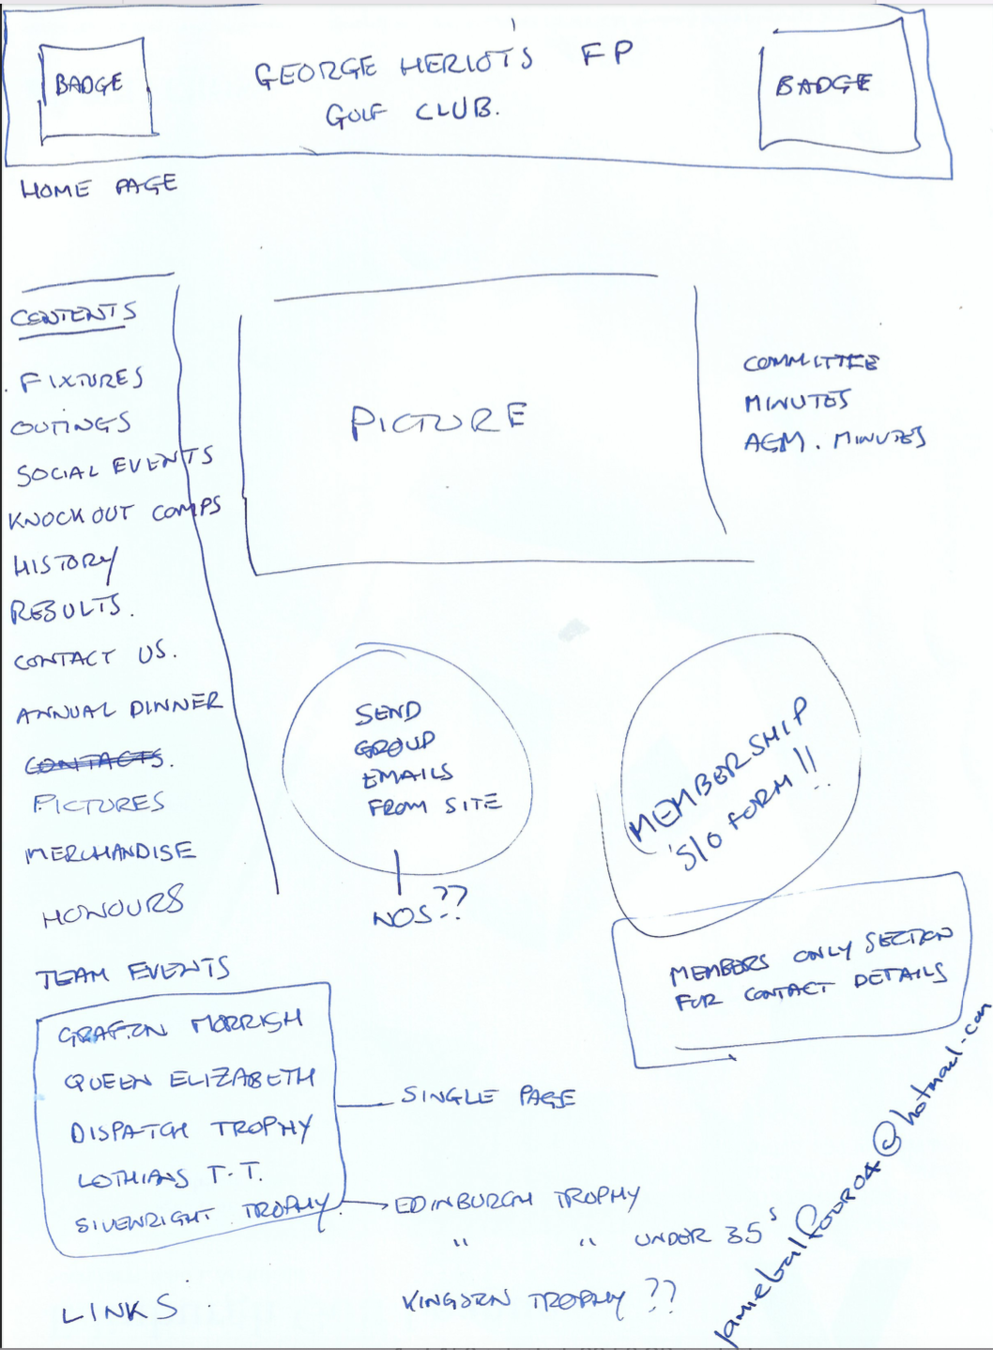 BADGE
GEORGE HERIOT'S FP
GOLF CLUB.
BADGE
HOME PAGE
CONTENTS
. FIXTURES
OUTINGS
SOCIAL EVENTS
KNOCKOUT COMPS
HISTORY
RESULTS.
CONTACT US.
ANNUAL DINNER
CONTACTS.
PICTURES
MERCHANDISE
HONOURS
TEAM EVENTS
GRAFTON MORRISH
QUEEN ELIZABETH
DISPATCH TROPHY
LOTHIANS T.T.
SIVEWRIGHT TROPHY.
LINKS
PICTURE
COMMITTEE
MINUTES
AGM. MINUTES
SEND
GROUP
EMAILS
FROM SITE
NOS??
MEMBERSHIP
S/O FORM!!
MEMBERS ONLY SECTION
FOR CONTACT DETAILS
SINGLE PAGE
EDINBURGH TROPHY
" " UNDER 35s
TROPHY ??
jamiebalfour04@hotmail.com